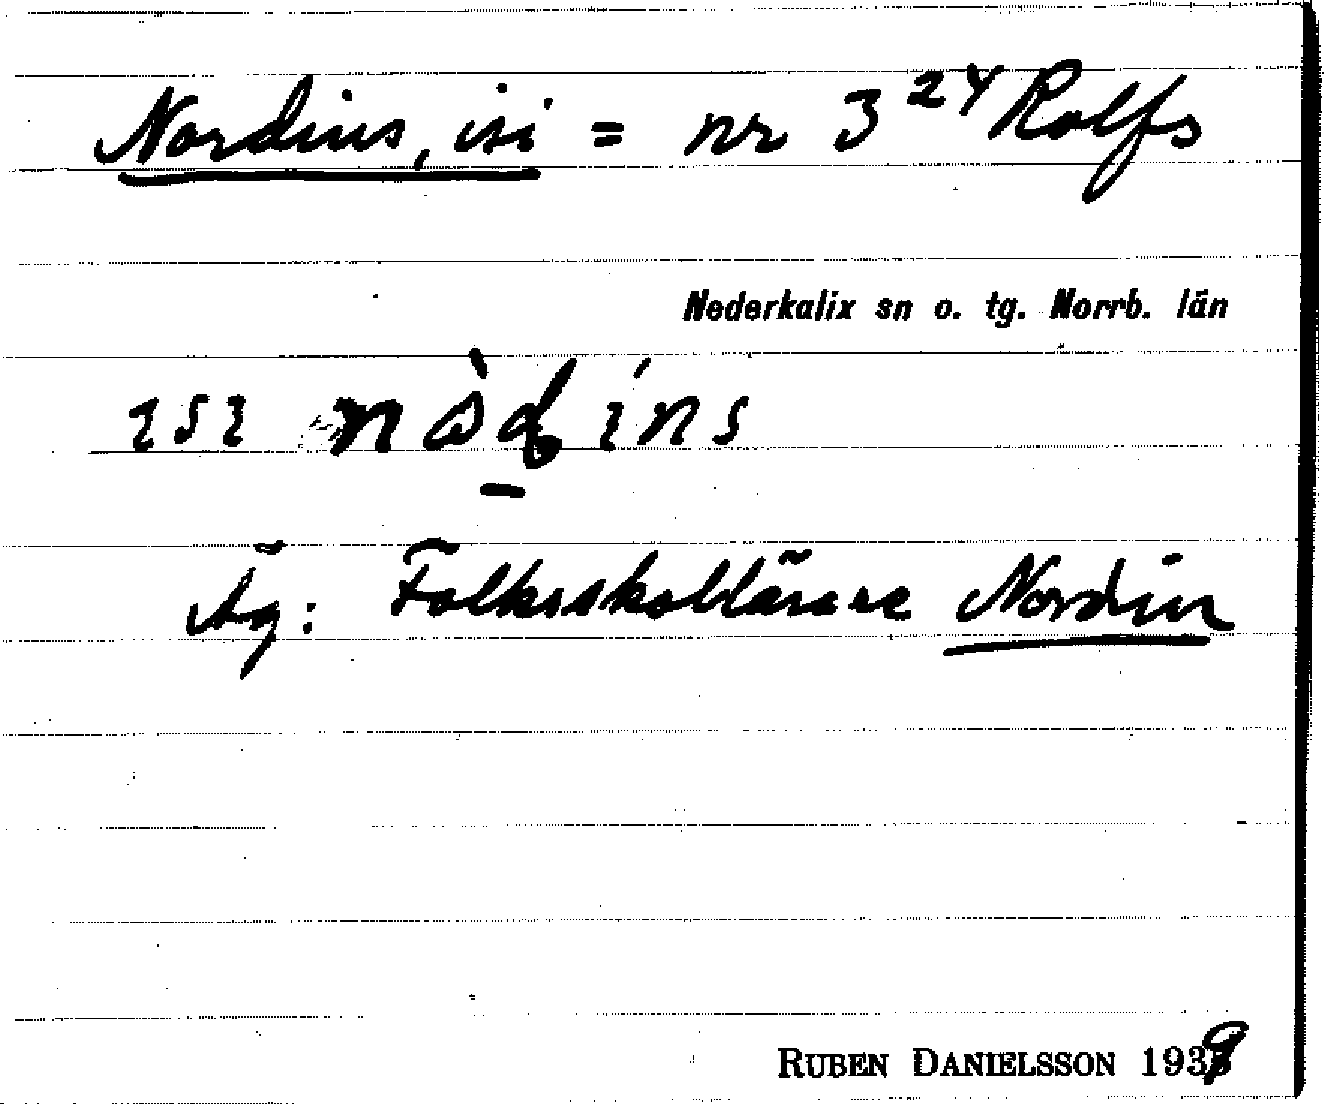 Nordins, isi = nr 3²⁴ Rolfs
Nederkalix sn o. tg. Norrb. län
ɪsɪ nɷ̀ɖíns
Äg: Folkskollärare Nordin
RUBEN DANIELSSON 1939